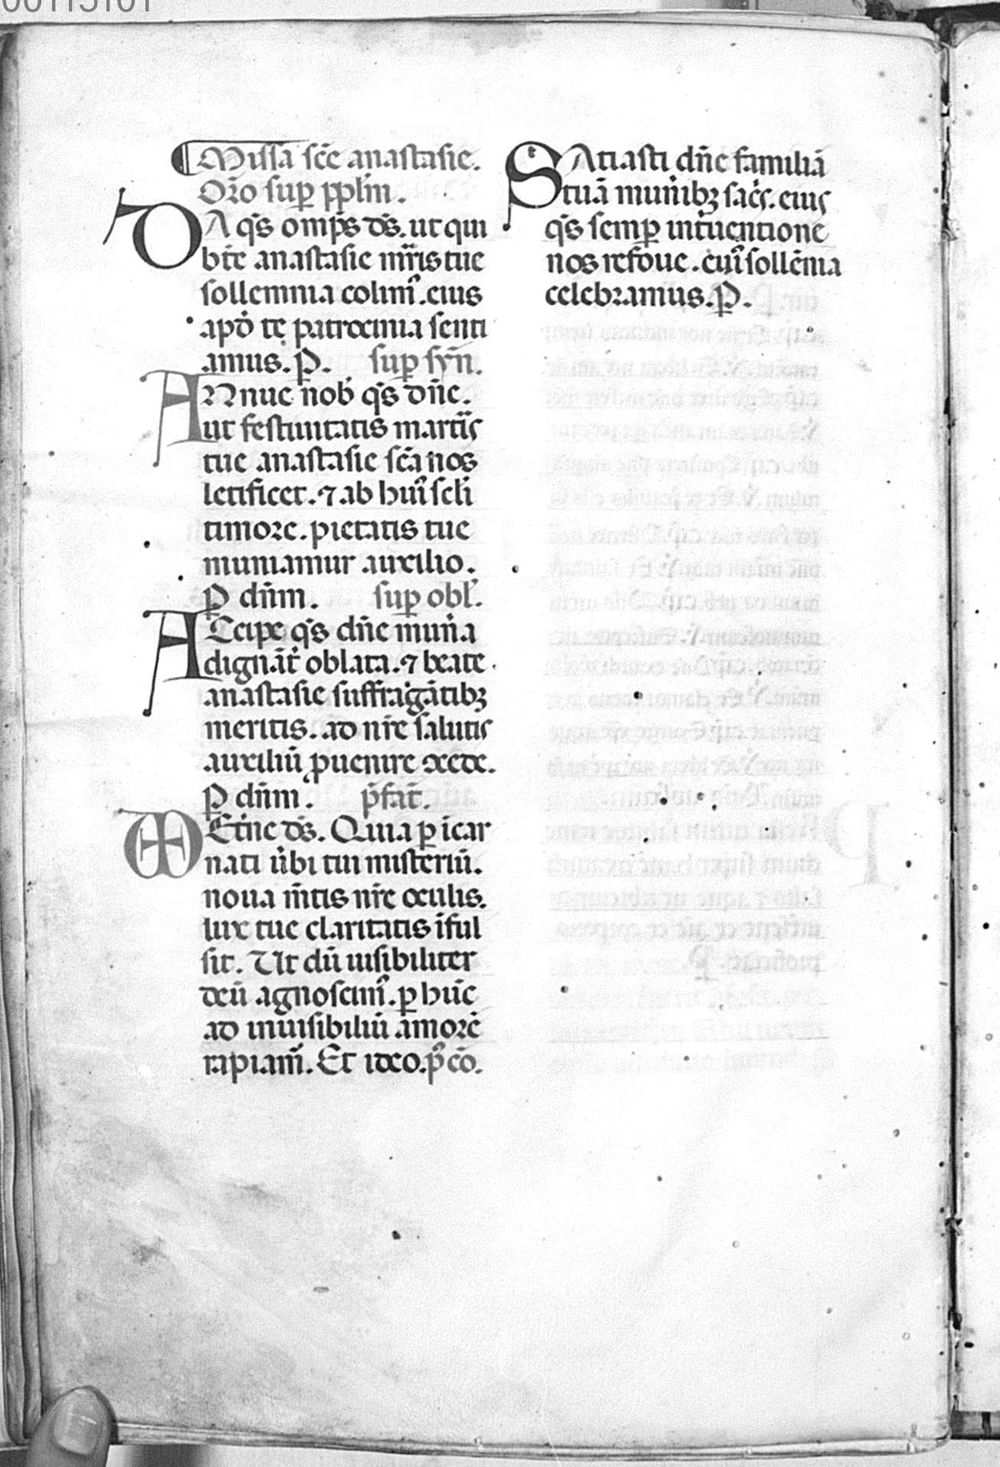 00115101
Missa sc̄e anastasie.
Or̄o sup̲ pp̄lm̄.
DA q̄s omp̄s ds̄. ut qui
bt̄e anastasie mr̄is tue
sollemnia colim⁹. eius
apō te patrocinia senti
amus. P̲. sup̲ syn̄.
ANnue nob̄ q̄s dn̄e.
ut festiuitatis martir̄
tue anastasie sc̄a nos
letificet. ⁊ ab hui⁹ scl̄i
timore. pietatis tue
muniamur auxilio.
P̲ dn̄m. sup̲ obl̄.
ACcipe q̄s dn̄e mun̄a
dignāt̄ oblata. ⁊ beate
anastasie suffragātibꝫ
meritis. ad nr̄e salutis
auxiliū p̱uenire ↄcede.
P̲ dn̄m. p̄fat̄.
ET̄ne ds̄. Quia p̲ īcar
nati ūbi tui misteriū.
noua m̄tis nr̄e oculis.
lux tue claritatis īful
sit. Ut dū uisibiliter
deū agnoscim⁹. p̲ hūc
ad inuisibiliū amorē
rapiam̄. Et ideo. p̄ cō.
SAtiasti dn̄e familiā
tuā mun̄ibꝫ sac̄s. eius
q̄s semp̲ int̄uentione
nos refoue. cui⁹ sollēnia
celebramus. P̲.